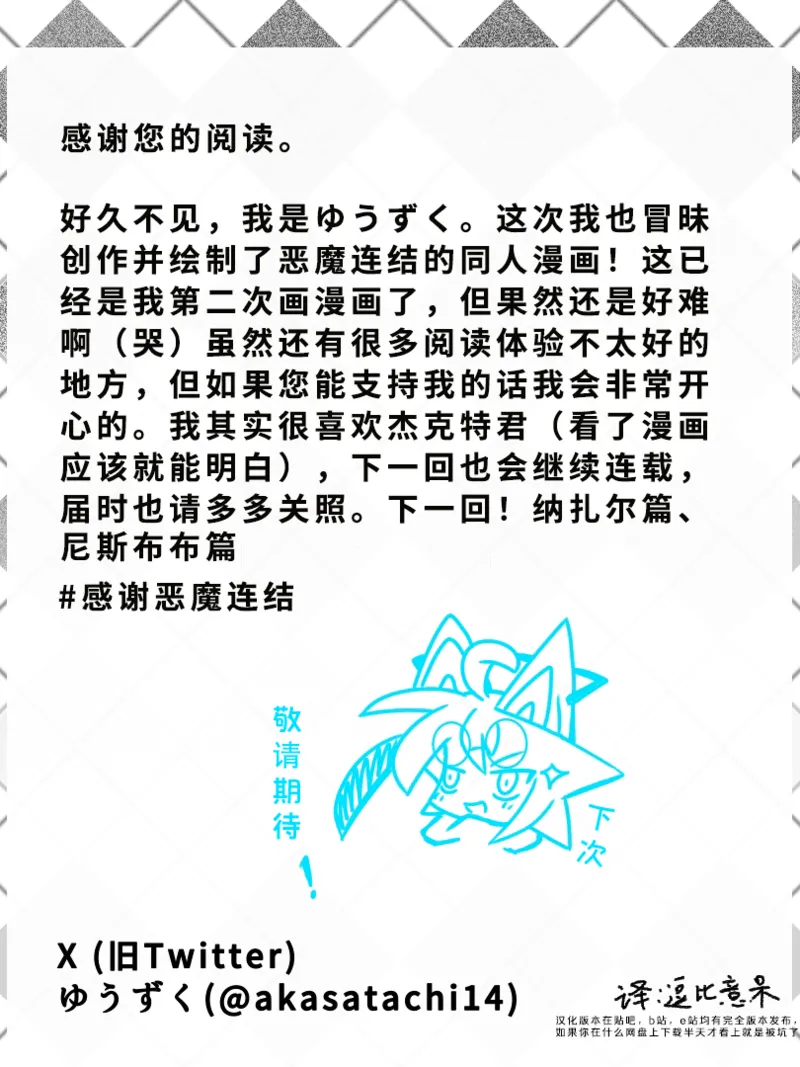 感谢您的阅读。
好久不见，我是ゆうずく。这次我也冒昧
创作并绘制了恶魔连结的同人漫画！这已
经是我第二次画漫画了，但果然还是好难
啊（哭）虽然还有很多阅读体验不太好的
地方，但如果您能支持我的话我会非常开
心的。我其实很喜欢杰克特君（看了漫画
应该就能明白），下一回也会继续连载，
届时也请多多关照。下一回！纳扎尔篇、
尼斯布布篇
#感谢恶魔连结
敬请期待！
下次
X (旧Twitter)
ゆうずく(@akasatachi14)
译:逗比意呆
汉化版本在贴吧，b站，e站均有完全版本发布，
如果你在什么网盘上下载半天才看上就是被坑了